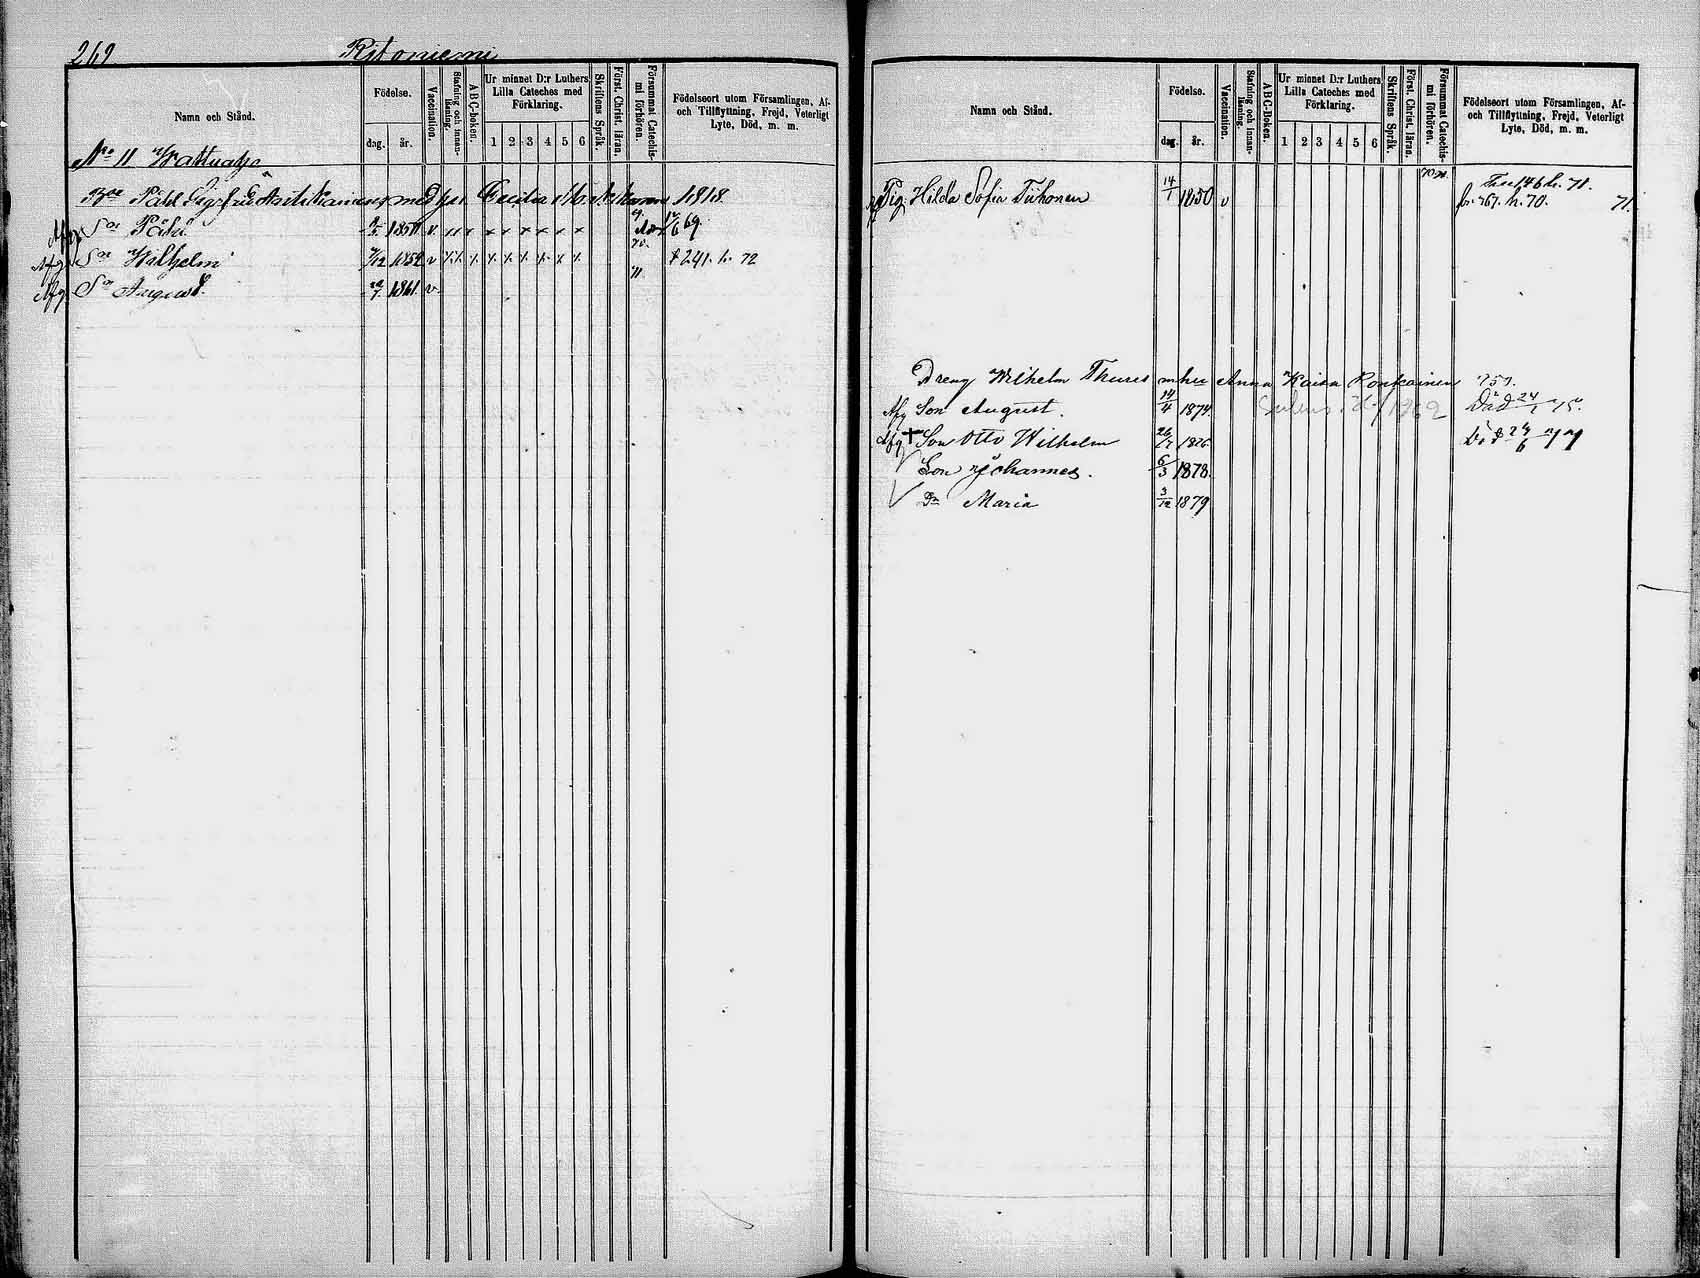 269 Ritoniemi
Namn och Stånd.
Födelse.
dag. år.
Vaccination.
Stafning och innanläsning.
ABC-boken.
Ur minnet D:r Luthers Lilla Cateches med Förklaring.
1 2 3 4 5 6
Skriftens Språk.
Först. Christ. läran.
Försummat Catechismi förhören.
Födelseort utom Församlingen, Af-
och Tillflyttning, Frejd, Veterligt
Lyte, Död, m. m.
No 11 Wattuaho
Påhl Sigfrid med hu Cecilia 1818.
Afg Son Påhl 1850 v 69 12/6 69.
Afg Son Wilhelm /12 1852 v 70. 241. h. 72
Afg Son August. /7 1861 v. 71
Namn och Stånd.
Födelse.
dag. år.
Vaccination.
Stafning och innanläsning.
ABC-boken.
Ur minnet D:r Luthers Lilla Cateches med Förklaring.
1 2 3 4 5 6
Skriftens Språk.
Först. Christ. läran.
Försummat Catechismi förhören.
Födelseort utom Församlingen, Af-
och Tillflyttning, Frejd, Veterligt
Lyte, Död, m. m.
146 h. 71.
Pig. Hilda Sofia Tiihonen 14/1 1850 v h. 70. 71.
Dreng Wilhelm Thures m hu Anna Kaisa Ronkainen 757.
Afg Son August. 14/4 1874. Död 24/ 75.
Afg + Son Otto Wilhelm 26/ 1876 Död 24/6 77
Son Johannes. 6/3 1878.
Dr Maria 3/12 1879